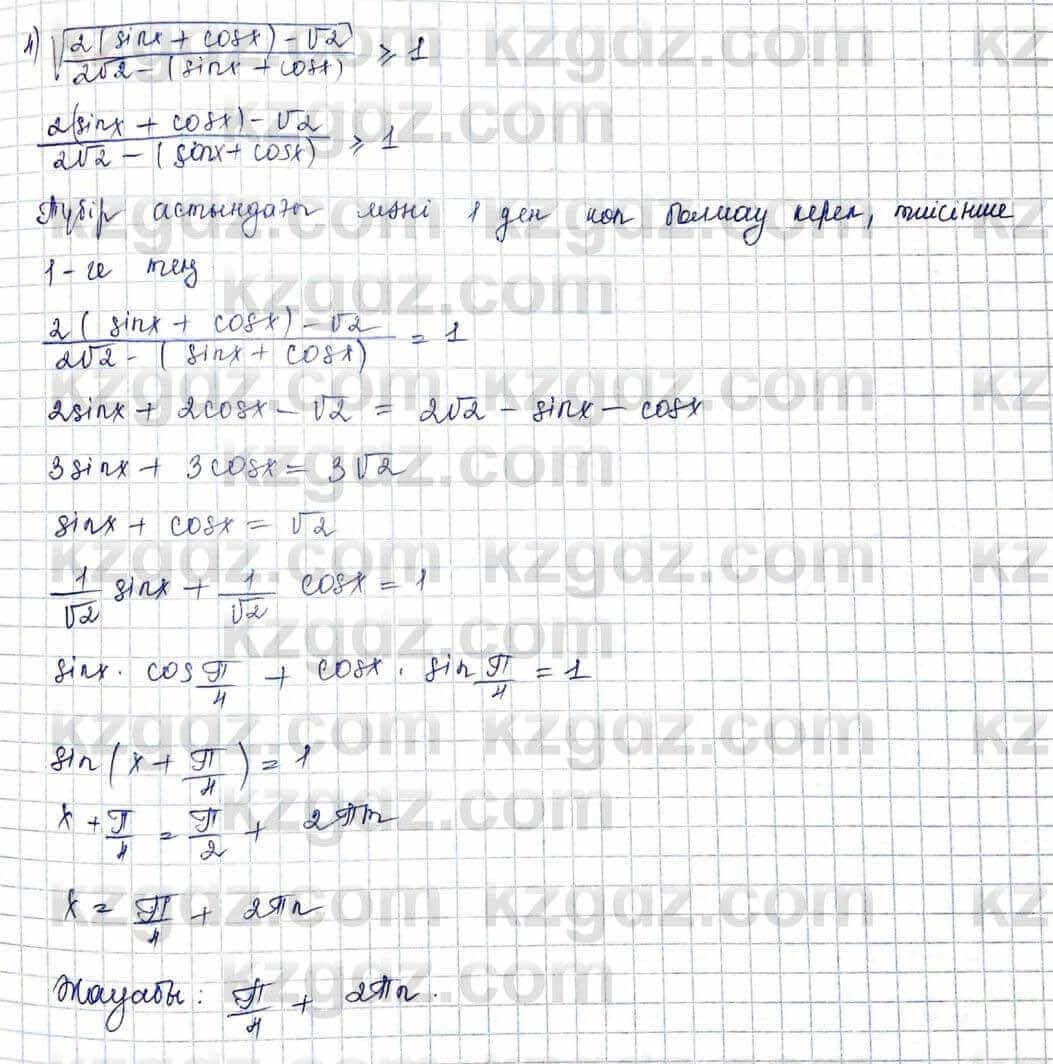 4) √(2(sinx + cosx) - √2)/(2√2 - (sinx + cosx)) ⩾ 1
(2(sinx + cosx) - √2)/(2√2 - (sinx + cosx)) ⩾ 1
Түбір астындағы мәні 1 ден көп болмау керек, тиісінше
1-ге тең
(2(sinx + cosx) - √2)/(2√2 - (sinx + cosx)) = 1
2sinx + 2cosx - √2 = 2√2 - sinx - cosx
3sinx + 3cosx = 3√2
sinx + cosx = √2
1/√2 sinx + 1/√2 cosx = 1
sinx · cos π/4 + cosx · sin π/4 = 1
sin(x + π/4) = 1
x + π/4 = π/2 + 2πn
x = π/4 + 2πn
Жауабы: π/4 + 2πn.
kzgdz.com